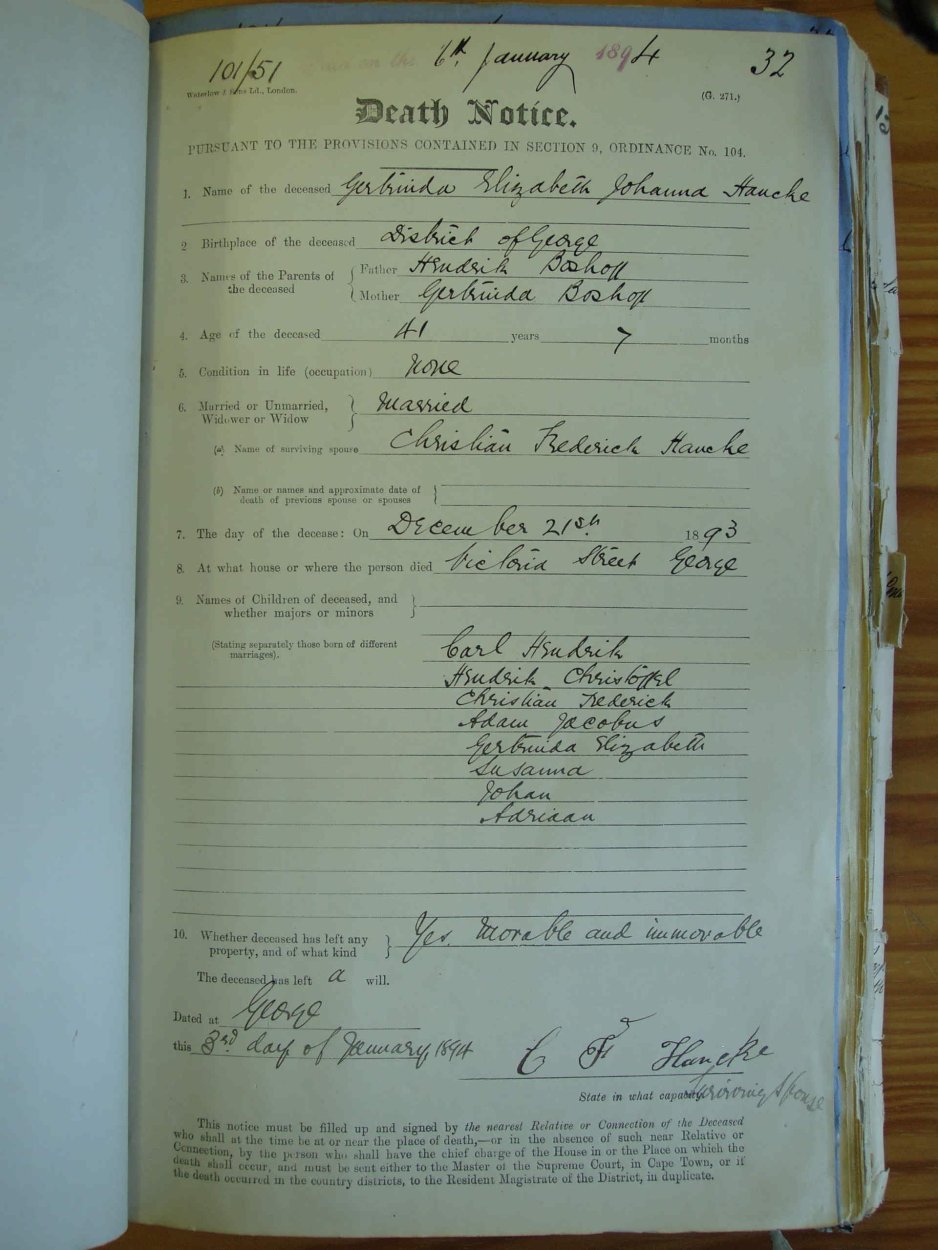 101/51 6th January 1894 32
Waterlow & Sons Ld., London. (G. 271.)
Death Notice.
PURSUANT TO THE PROVISIONS CONTAINED IN SECTION 9, ORDINANCE No. 104.
1. Name of the deceased Gertruida Elizabeth Johanna Hancke
2 Birthplace of the deceased District of George
3. Names of the Parents of the deceased { Father Hendrik Boshoff
Mother Gertruida Boshoff
4. Age of the deceased 41 years 7 months
5. Condition in life (occupation) None
6. Married or Unmarried, Widower or Widow } Married
(a) Name of surviving spouse Christian Frederick Hancke
(b) Name or names and approximate date of
death of previous spouse or spouses }
7. The day of the decease: On December 21st. 1893
8. At what house or where the person died Victoria Street George
9. Names of Children of deceased, and
whether majors or minors }
(Stating separately those born of different
marriages).
Carl Hendrik
Hendrik Christoffel
Christian Frederick
Adam Jacobus
Gertruida Elizabeth
Susanna
Johan
Adriaan
10. Whether deceased has left any
property, and of what kind } Yes. Movable and immovable
The deceased has left a will.
Dated at George
this 3rd day of January 1894 C F Hancke
State in what capacity Surviving Spouse
This notice must be filled up and signed by the nearest Relative or Connection of the Deceased
who shall at the time be at or near the place of death,—or in the absence of such near Relative or
Connection, by the person who shall have the chief charge of the House in or the Place on which the
death shall occur, and must be sent either to the Master of the Supreme Court, in Cape Town, or if
the death occurred in the country districts, to the Resident Magistrate of the District, in duplicate.